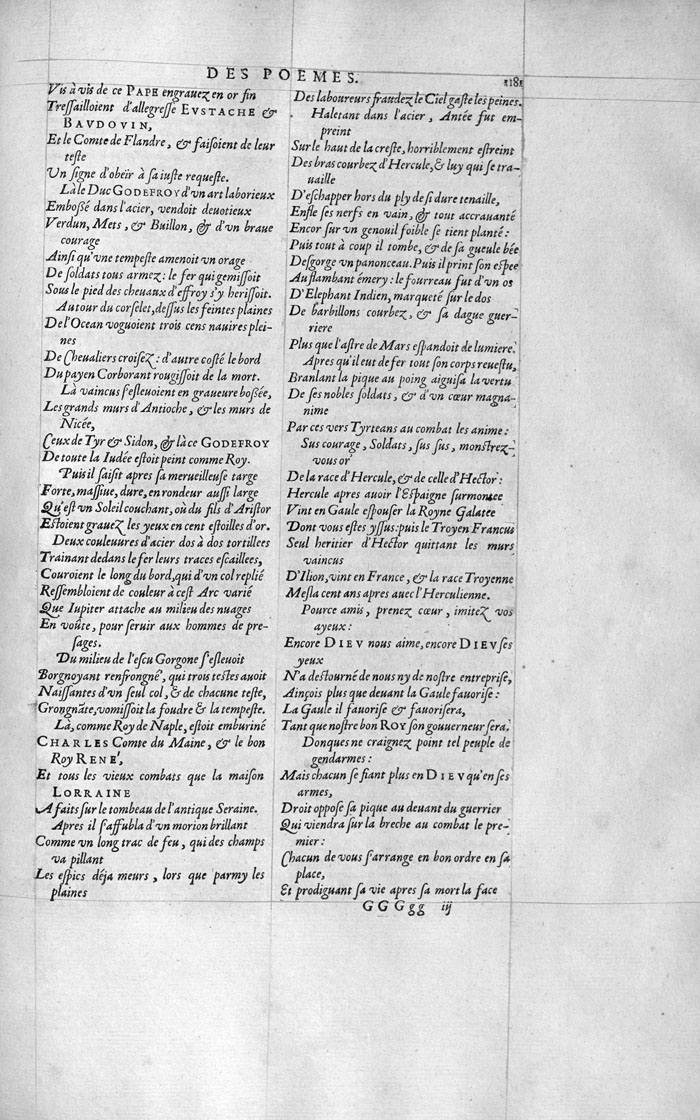 DES POEMES.
1181
Vis à vis de ce PAPE engrauez en or fin
Tressailloient d'allegresse EVSTACHE &
BAVDOVIN,
Et le Comte de Flandre, & faisoient de leur
teste
Vn signe d'obeïr à sa iuste requeste.
Là le Duc GODEFROY d'vn art laborieux
Embossé dans l'acier, vendoit deuotieux
Verdun, Mets, & Buillon, & d'vn braue
courage
Ainsi qu'vne tempeste amenoit vn orage
De soldats tous armez : le fer qui gemissoit
Sous le pied des cheuaux d'effroy s'y herissoit.
Autour du corselet, dessus les feintes plaines
De l'Ocean voguoient trois cens nauires plei-
nes
De Cheualiers croisez : d'autre costé le bord
Du payen Corborant rougissoit de la mort.
Là vaincus s'esleuoient en graueure bossée,
Les grands murs d'Antioche, & les murs de
Nicée,
Ceux de Tyr & Sidon, & là ce GODEFROY
De toute la Iudée estoit peint comme Roy.
Puis il saisit apres sa merueilleuse targe
Forte, massiue, dure, en rondeur aussi large
Qu'est vn Soleil couchant, où du fils d'Aristor
Estoient grauez les yeux en cent estoilles d'or.
Deux couleuures d'acier dos à dos tortillees
Trainant dedans le fer leurs traces escaillees,
Couroient le long du bord, qui d'vn col replié
Ressembloient de couleur à cest Arc varié
Que Iupiter attache au milieu des nuages
En voûte, pour seruir aux hommes de pre-
sages.
Du milieu de l'escu Gorgone s'esleuoit
Borgnoyant renfrongné, qui trois testes auoit
Naissantes d'vn seul col, & de chacune teste,
Grongnāte, vomissoit la foudre & la tempeste.
Là, comme Roy de Naple, estoit emburiné
CHARLES Comte du Maine, & le bon
Roy RENÉ,
Et tous les vieux combats que la maison
LORRAINE
A faits sur le tombeau de l'antique Seraine.
Apres il s'affubla d'vn morion brillant
Comme vn long trac de feu, qui des champs
va pillant
Les espics déja meurs, lors que parmy les
plaines
Des laboureurs fraudez le Ciel gaste les peines.
Haletant dans l'acier, Antée fut em-
preint
Sur le haut de la creste, horriblement estreint
Des bras courbez d'Hercule, & luy qui se tra-
uaille
D'eschapper hors du ply de si dure tenaille,
Enfle ses nerfs en vain, & tout accrauanté
Encor sur vn genouil foible se tient planté :
Puis tout à coup il tombe, & de sa gueule bée
Desgorge vn panonceau. Puis il print son espee
Au flambant émery : le fourreau fut d'vn os
D'Elephant Indien, marqueté sur le dos
De barbillons courbez, & sa dague guer-
riere
Plus que l'astre de Mars espandoit de lumiere.
Apres qu'il eut de fer tout son corps reuestu,
Branlant la pique au poing aiguisa la vertu
De ses nobles soldats, & d'vn cœur magna-
nime
Par ces vers Tyrteans au combat les anime :
Sus courage, Soldats, sus sus, monstrez-
vous or'
De la race d'Hercule, & de celle d'Hector :
Hercule apres auoir l'Espaigne surmontee
Vint en Gaule espouser la Royne Galatée
Dont vous estes yssus : puis le Troyen Francus
Seul heritier d'Hector quittant les murs
vaincus
D'Ilion, vint en France, & la race Troyenne
Mesla cent ans apres auec l'Herculienne.
Pource amis, prenez cœur, imitez vos
ayeux :
Encore DIEV nous aime, encore DIEV ses
yeux
N'a destourné de nous ny de nostre entreprise,
Ainçois plus que deuant la Gaule fauorise :
La Gaule il fauorise & fauorisera,
Tant que nostre bon ROY son gouuerneur sera.
Donques ne craignez point tel peuple de
gendarmes :
Mais chacun se fiant plus en DIEV qu'en ses
armes,
Droit oppose sa pique au deuant du guerrier
Qui viendra sur la breche au combat le pre-
mier :
Chacun de vous s'arrange en bon ordre en sa
place,
Et prodiguant sa vie apres sa mort la face
GGGgg iij